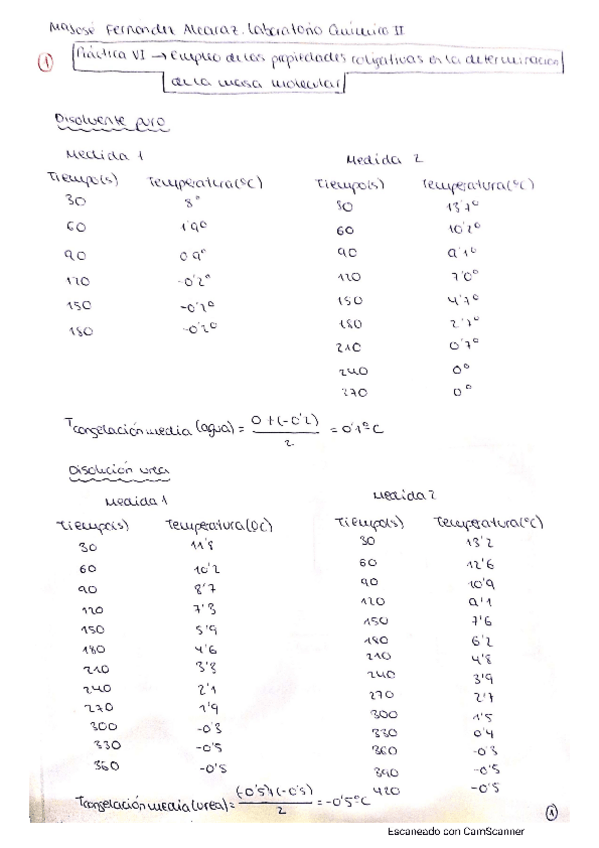 MaJosé Fernandez Alcaraz. Laboratorio Químico II
① Práctica VI → empleo de las propiedades coligativas en la determinación
de la masa molecular
Disolvente puro
Medida 1 Medida 2
Tiempo(s) Temperatura(ºC) Tiempo(s) Temperatura(ºC)
30 8º 30 13'7º
60 1'9º 60 10'2º
90 0'9º 90 9'1º
120 -0'2º 120 7'0º
150 -0'2º 150 4'7º
180 -0'2º 180 2'7º
210 0'7º
240 0º
270 0º
Tcongelación media (agua) = 0+(-0'2) / 2 = 0'1ºC
Disolución urea
Medida 1 Medida 2
Tiempo(s) Temperatura(ºC) Tiempo(s) Temperatura(ºC)
30 11'8 30 13'2
60 10'2 60 12'6
90 8'7 90 10'9
120 7'3 120 9'1
150 5'9 150 7'6
180 4'6 180 6'2
210 3'3 210 4'8
240 2'1 240 3'9
270 1'9 270 2'7
300 -0'3 300 1'5
330 -0'5 330 0'4
360 -0'5 360 -0'3
390 -0'5
420 -0'5
Tcongelación media (urea) = (-0'5)+(-0'5) / 2 = -0'5ºC
①
Escaneado con CamScanner